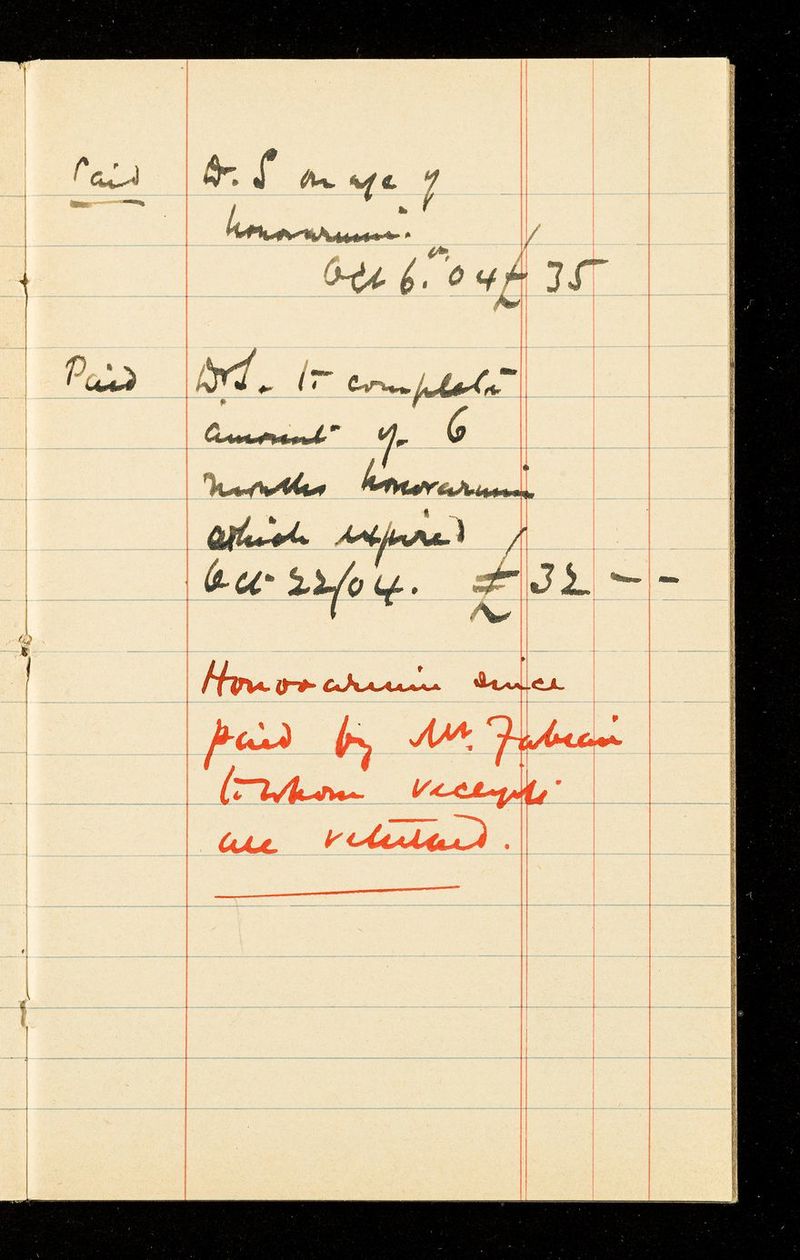 Paid Dr. S on a/c of
honorarium.
Oct 6th. 04 £ 35
Paid Dr S. to complete
amount of 6
months honorarium
which expired
Oct 22/04. £ 32 - -
Honorarium since
paid by Mr. Fabian
to whom receipts
are returned.